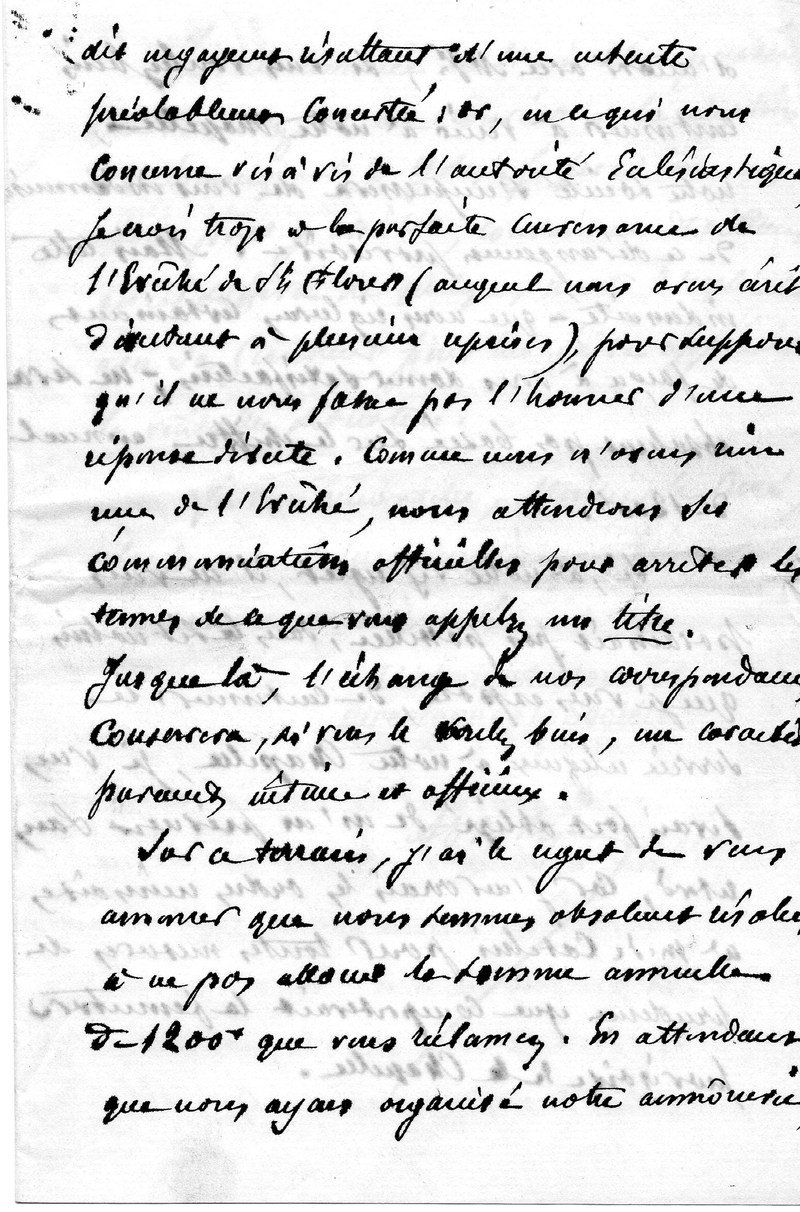 dit engagement résultant d'une entente
préalablement concertée ; or, en ce qui nous
concerne vis à vis de l'autorité Ecclésiastique
Je crois trop à la parfaite convenance de
l'Evêché de St Flour (auquel nous avons écrit
d'autant à plusieurs reprises), pour supposer
qu'il ne nous fasse pas l'honneur d'une
réponse directe. Comme nous n'avons rien
de l'Evêché, nous attendrons ses
communications officielles pour arrêter les
termes de ce que vous appelez un titre.
Jusque là, l'échange de nos correspondances
conservera, si vous le voulez bien, un caractère
purement intime et officieux.
Sur ce terrain, j'ai le regret de vous
annoncer que nous sommes absolument résolus
à ne pas allouer la somme annuelle
de 1200f que vous réclamez. En attendant
que nous ayons organisé notre aumônerie